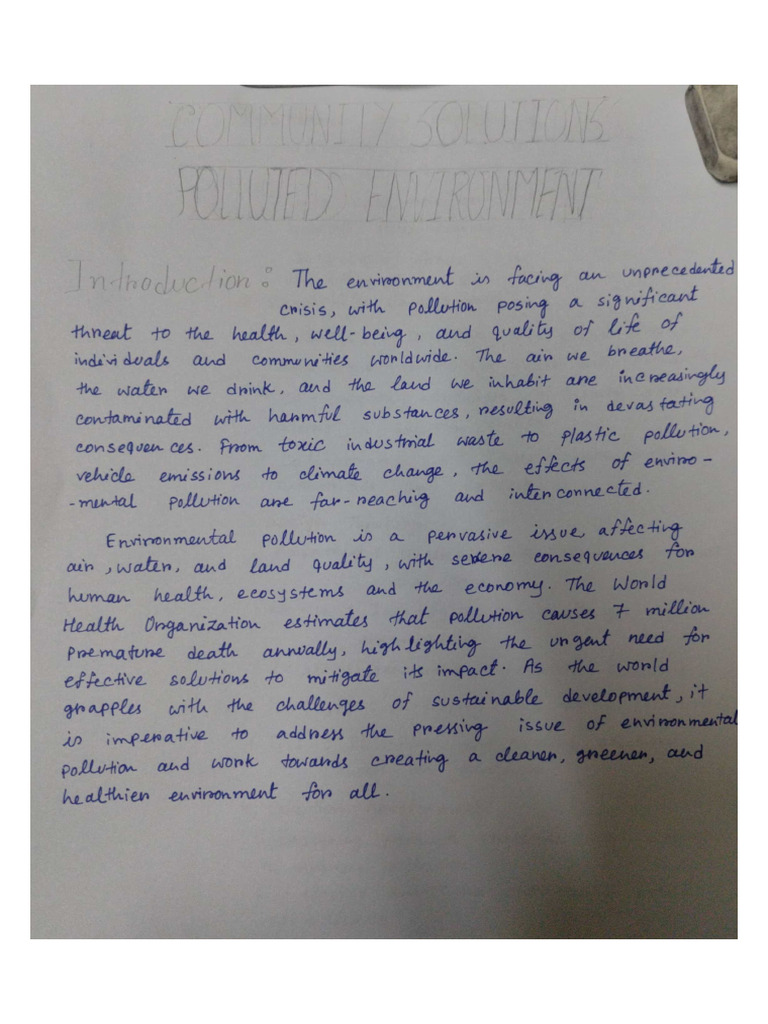 COMMUNITY SOLUTIONS
POLLUTED ENVIRONMENT
Introduction: The environment is facing an unprecedented
crisis, with pollution posing a significant
threat to the health, well-being, and quality of life of
individuals and communities worldwide. The air we breathe,
the water we drink, and the land we inhabit are increasingly
contaminated with harmful substances, resulting in devastating
consequences. From toxic industrial waste to plastic pollution,
vehicle emissions to climate change, the effects of enviro-
-mental pollution are far-reaching and interconnected.
Environmental pollution is a pervasive issue, affecting
air, water, and land quality, with severe consequences for
human health, ecosystems and the economy. The World
Health Organization estimates that pollution causes 7 million
premature death annually, highlighting the urgent need for
effective solutions to mitigate its impact. As the world
grapples with the challenges of sustainable development, it
is imperative to address the pressing issue of environmental
pollution and work towards creating a cleaner, greener, and
healthier environment for all.